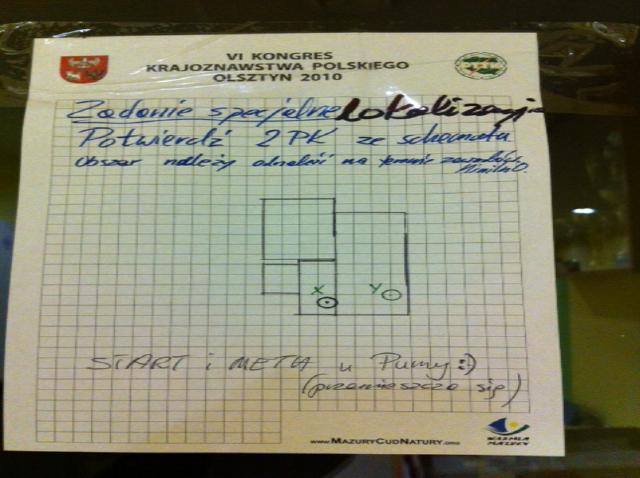 VI KONGRES
KRAJOZNAWSTWA POLSKIEGO
OLSZTYN 2010
Zadanie specjalne Lokalizacja
Potwierdź 2 PK ze schematu
Obszar należy odnaleźć na terenie zawodów
X Y
START i META u Pumy :)
(przemieszcza się)
www.MazuryCudNatury.org
WARMIA
MAZURY